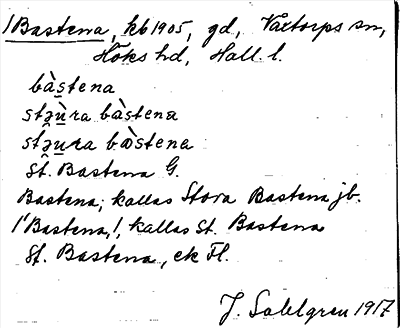 /Bastena, kb 1905, gd, Våxtorps sn,
Höks hd, Hall. l.
bàstena
stəù̱ra bàstena
stə̂u̱ra bàstena
St. Bastena G.
Bastena; kallas Stora Bastena jb.
/'Bastena,/, kallas St. Bastena
St. Bastena, ek Fl.
J. Sahlgren 1917